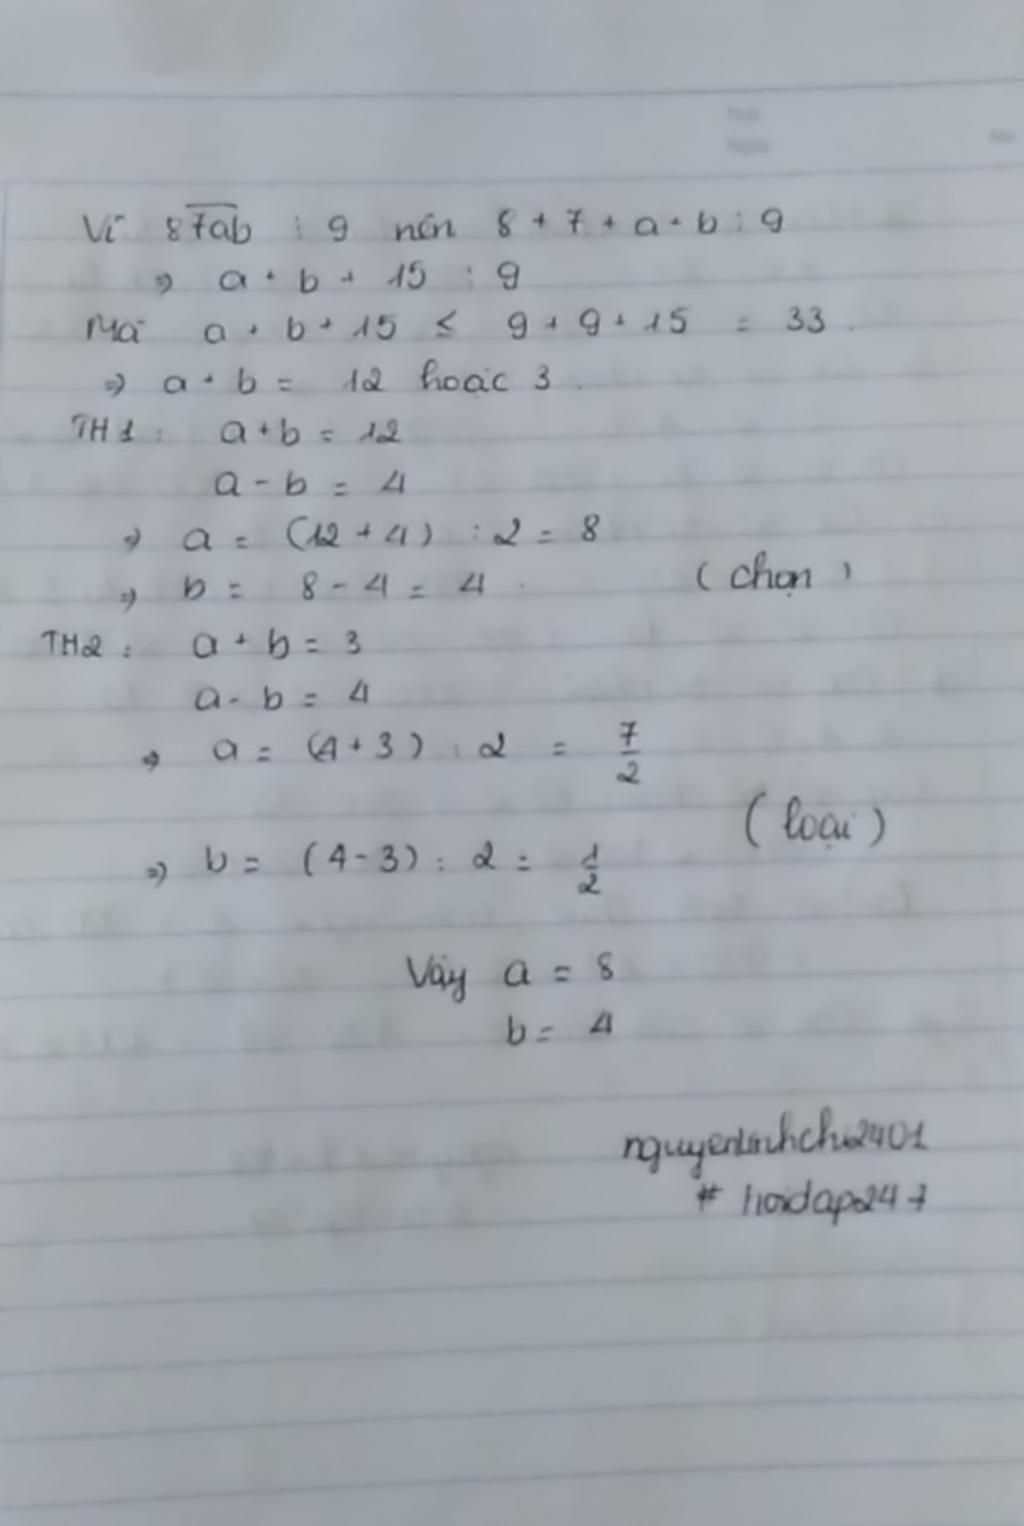 Vì 87ab ⋮ 9 nên 8 + 7 + a + b ⋮ 9
⇒ a + b + 15 ⋮ 9
Mà a + b + 15 ≤ 9 + 9 + 15 = 33.
⇒ a + b = 12 hoặc 3
TH1: a + b = 12
a - b = 4
⇒ a = (12 + 4) : 2 = 8
⇒ b = 8 - 4 = 4. (chọn)
TH2: a + b = 3
a - b = 4
⇒ a = (4 + 3) : 2 = 7/2
(loại)
⇒ b = (4 - 3) : 2 = 1/2
Vậy a = 8
b = 4
nguyenlinhchi2401
# hoidap247